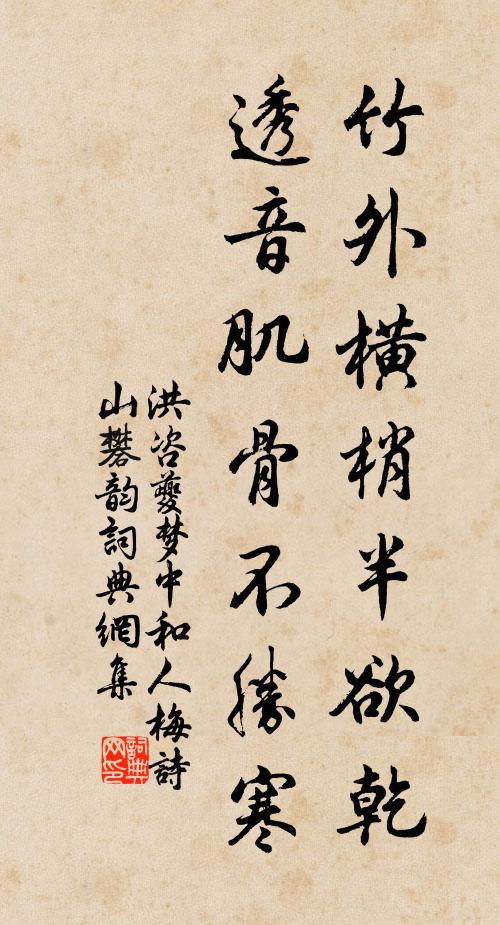 竹外横梢半欲乾
透音肌骨不勝寒
洪咨夔梦中和人梅詩
山礬韵詞典網集
詞典網印